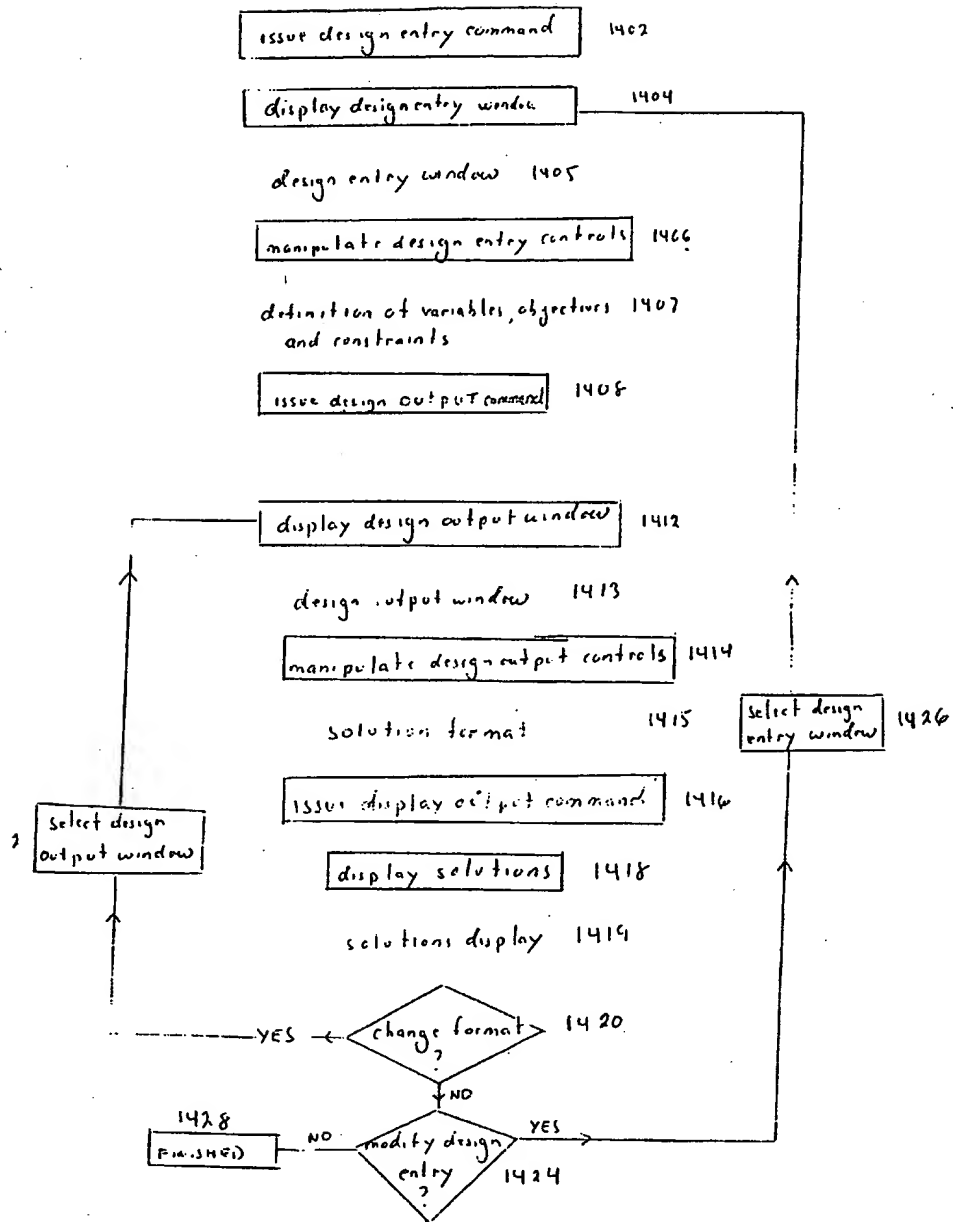 issue design entry command 1402
display design entry window 1404
design entry window 1405
manipulate design entry controls 1406
definition of variables, objectives 1407
and constraints
issue design output command 1408
display design output window 1412
design output window 1413
manipulate design output controls 1414
solution format 1415
select design 1426
entry window
issue display output command 1416
2 select design
output window
display solutions 1418
solutions display 1419
YES change format 1420
?
NO
1428
FINISHED NO modify design YES
entry 1424
?